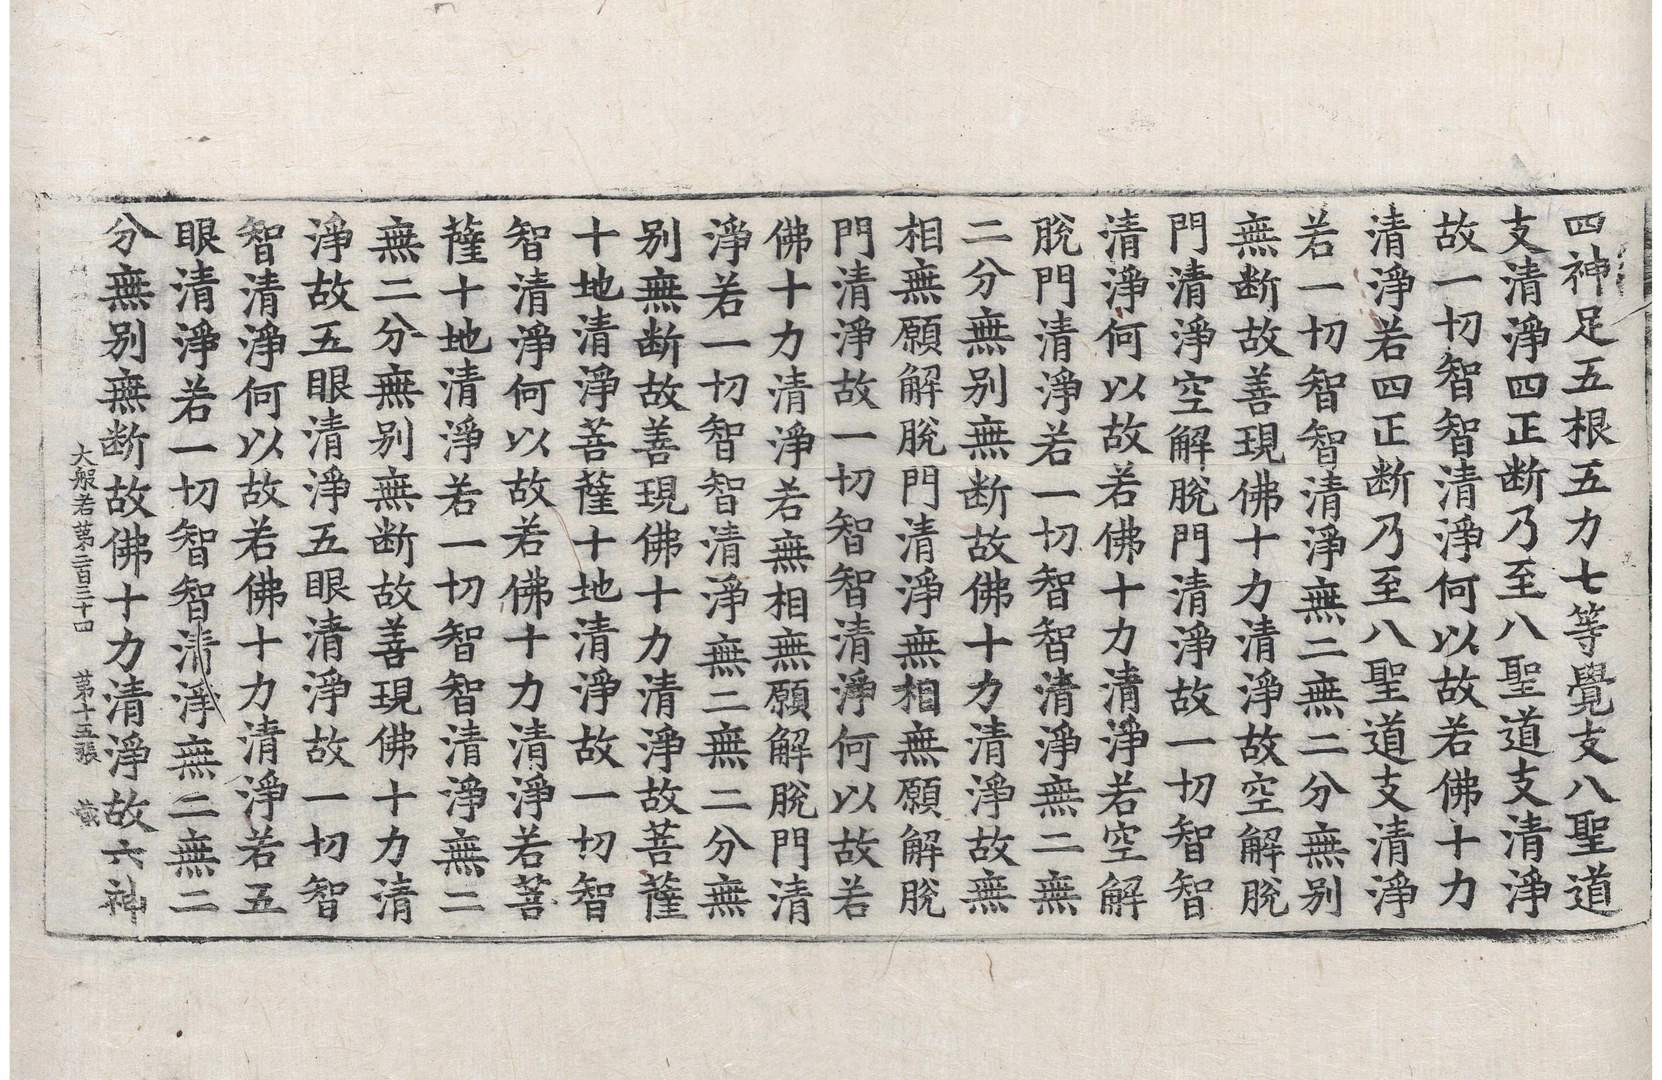 四神足五根五力七等覺支八聖道
支清淨四正断乃至八聖道支清淨
故一切智智清淨何以故若佛十力
清淨若四正断乃至八聖道支清淨
若一切智智清淨無二無二分無别
無断故善現佛十力清淨故空解脫
門清淨空解脫門清淨故一切智智
清淨何以故若佛十力清淨若空解
脫門清淨若一切智智清淨無二無
二分無别無断故佛十力清淨故無
相無願解脫門清淨無相無願解脫
門清淨故一切智智清淨何以故若
佛十力清淨若無相無願解脫門清
淨若一切智智清淨無二無二分無
别無断故善現佛十力清淨故菩薩
十地清淨菩薩十地清淨故一切智
智清淨何以故若佛十力清淨若菩
薩十地清淨若一切智智清淨無二
無二分無别無断故善現佛十力清
淨故五眼清淨五眼清淨故一切智
智清淨何以故若佛十力清淨若五
眼清淨若一切智智清淨無二無二
分無别無断故佛十力清淨故六神
大般若第二百三十四 第十五張